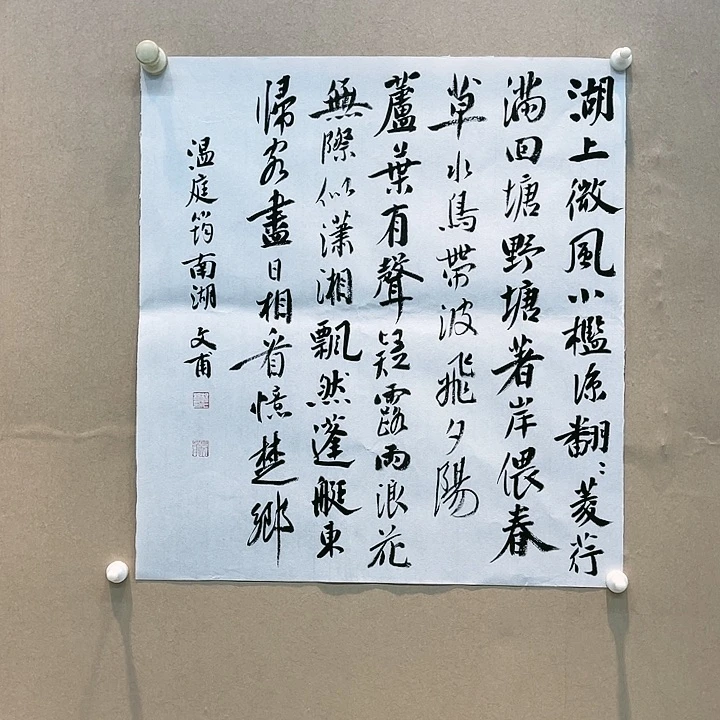 湖上微風小檻涼翻〻菱荇
滿回塘野塘著岸偎春
草水鳥帶波飛夕陽
蘆葉有聲疑露雨浪花
無際似瀟湘飄然蓬艇東
歸客盡日相看憶楚鄉
温庭筠南湖 文甫